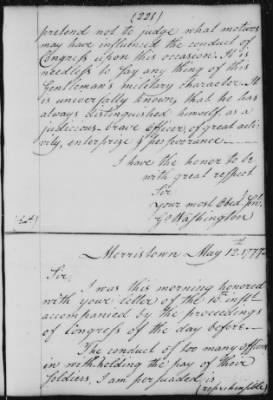 (221)
pretend not to judge what motives
may have influenced the conduct of
Congress upon this occasion. It is
needless to say any thing of this
Gentleman's military character. It
is universally known, that he has
always distinguished himself, as a
judicious, brave officer, of great acti-
vity, enterprize & perseverance.
I have the honor to be
with great respect
Sir
Your most Obedt Servt
Go Washington
Morristown May 12th 1777
Sir,
I was this morning honored
with your letter of the 10th instt
accompanied by the proceedings
of Congress of the day before.
The conduct of too many officers
in withholding the pay of their
soldiers, I am persuaded is
(reprehensible)